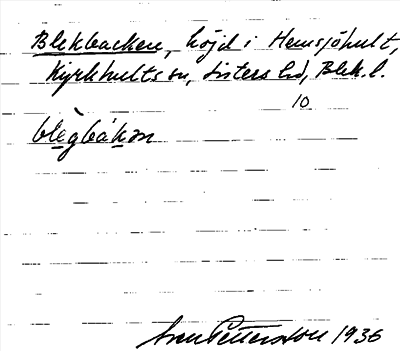 Blekbacken, höjd i Hemsjöhult,
Kyrkhults sn, Listers hd, Blek. l.
10
blègbákən
Sven Pettersson 1936